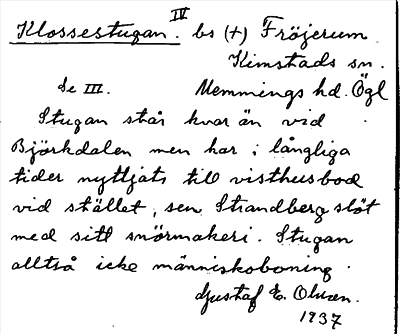 IV
Klossestugan. bs (+) Fröjerum
Kimstads sn.
Se III. Memmings hd. Ögl
Stugan står kvar än vid
Björkdalen men har i långliga
tider nyttjats till visthusbod
vid stället, sen Strandberg slöt
med sitt snörmakeri. Stugan
alltså icke människoboning.
Gustaf E. Olsson.
1937